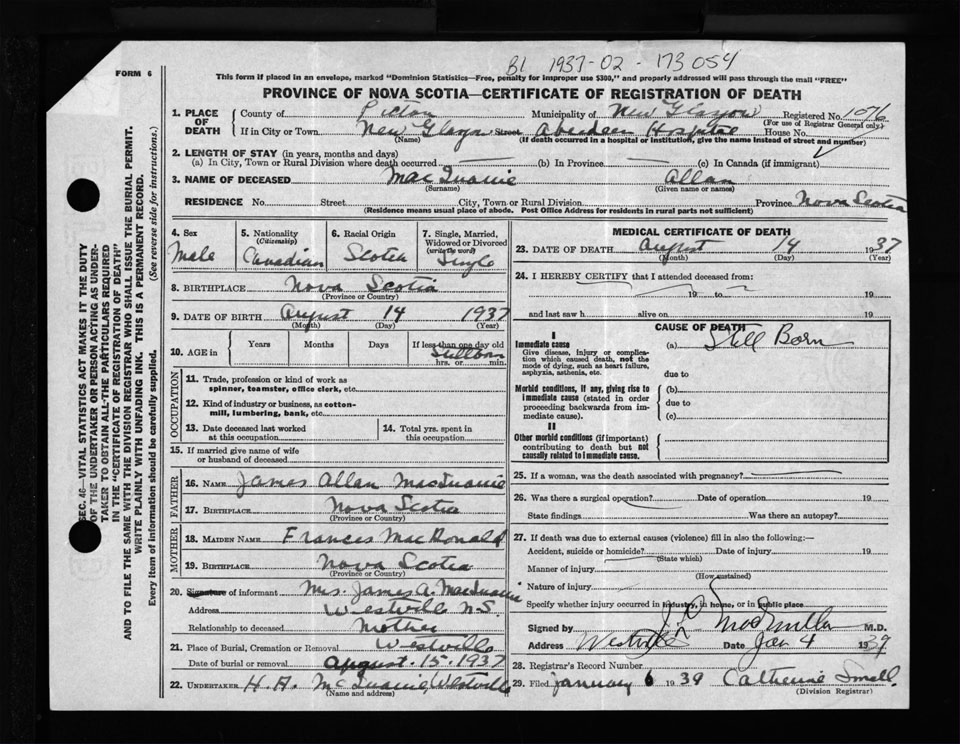 B1 1937-02-173054
FORM 6
This form if placed in an envelope, marked "Dominion Statistics—Free, penalty for improper use $300," and properly addressed will pass through the mail "FREE"
PROVINCE OF NOVA SCOTIA—CERTIFICATE OF REGISTRATION OF DEATH
1. PLACE OF DEATH County of Pictou Municipality of New Glasgow Registered No. 1076
(For use of Registrar General only.)
If in City or Town New Glasgow Street Aberdeen Hospital House No.
(Name) (If death occurred in a hospital or institution, give the name instead of street and number)
2. LENGTH OF STAY (in years, months and days)
(a) In City, Town or Rural Division where death occurred (b) In Province (c) In Canada (if immigrant)
3. NAME OF DECEASED Allan
(Surname) (Given name or names)
RESIDENCE No. Street City, Town or Rural Division Province Nova Scotia
(Residence means usual place of abode. Post Office Address for residents in rural parts not sufficient)
4. Sex Male
5. Nationality (Citizenship) Canadian
6. Racial Origin Scotch
7. Single, Married, Widowed or Divorced (write the word) Single
8. BIRTHPLACE Nova Scotia
(Province or Country)
9. DATE OF BIRTH August 14 1937
(Month) (Day) (Year)
10. AGE in Years Months Days If less than one day old
Stillborn
hrs. or min.
OCCUPATION
11. Trade, profession or kind of work as
spinner, teamster, office clerk, etc.
12. Kind of industry or business, as cotton-
mill, lumbering, bank, etc.
13. Date deceased last worked
at this occupation
14. Total yrs. spent in
this occupation
15. If married give name of wife
or husband of deceased
FATHER
16. NAME James Allan
17. BIRTHPLACE Nova Scotia
(Province or Country)
MOTHER
18. MAIDEN NAME Frances MacDonald
19. BIRTHPLACE Nova Scotia
(Province or Country)
20. Signature of informant Mrs. James A.
Address Westville N.S.
Relationship to deceased Mother
21. Place of Burial, Cremation or Removal Westville
Date of burial or removal August. 15. 1937
22. UNDERTAKER H. A. Westville
(Name and address)
MEDICAL CERTIFICATE OF DEATH
23. DATE OF DEATH August 14 1937
(Month) (Day) (Year)
24. I HEREBY CERTIFY that I attended deceased from:
19 to 19
and last saw h alive on 19
CAUSE OF DEATH
I
Immediate cause (a) Still Born
Give disease, injury or complica-
tion which caused death, not the
mode of dying, such as heart failure,
asphyxia, asthenia, etc.
due to
Morbid conditions, if any, giving rise to (b)
immediate cause (stated in order due to
proceeding backwards from im- (c)
mediate cause).
II
Other morbid conditions (if important)
contributing to death but not
causally related to immediate cause.
25. If a woman, was the death associated with pregnancy?
26. Was there a surgical operation? Date of operation 19
State findings Was there an autopsy?
27. If death was due to external causes (violence) fill in also the following:—
Accident, suicide or homicide? Date of injury 19
(State which)
Manner of injury
(How sustained)
Nature of injury
Specify whether injury occurred in industry, in home, or in public place
Signed by M.D.
Address Westville Date Jan 4 1939
28. Registrar's Record Number
29. Filed January 6 1939 Catherine Small
(Division Registrar)
SEC. 46—VITAL STATISTICS ACT MAKES IT THE DUTY
OF THE UNDERTAKER OR PERSON ACTING AS UNDER-
TAKER TO OBTAIN ALL THE PARTICULARS REQUIRED
IN THE "CERTIFICATE OF REGISTRATION OF DEATH"
AND TO FILE THE SAME WITH THE DIVISION REGISTRAR WHO SHALL ISSUE THE BURIAL PERMIT.
WRITE PLAINLY WITH UNFADING INK. THIS IS A PERMANENT RECORD.
Every item of information should be carefully supplied. (See reverse side for instructions.)